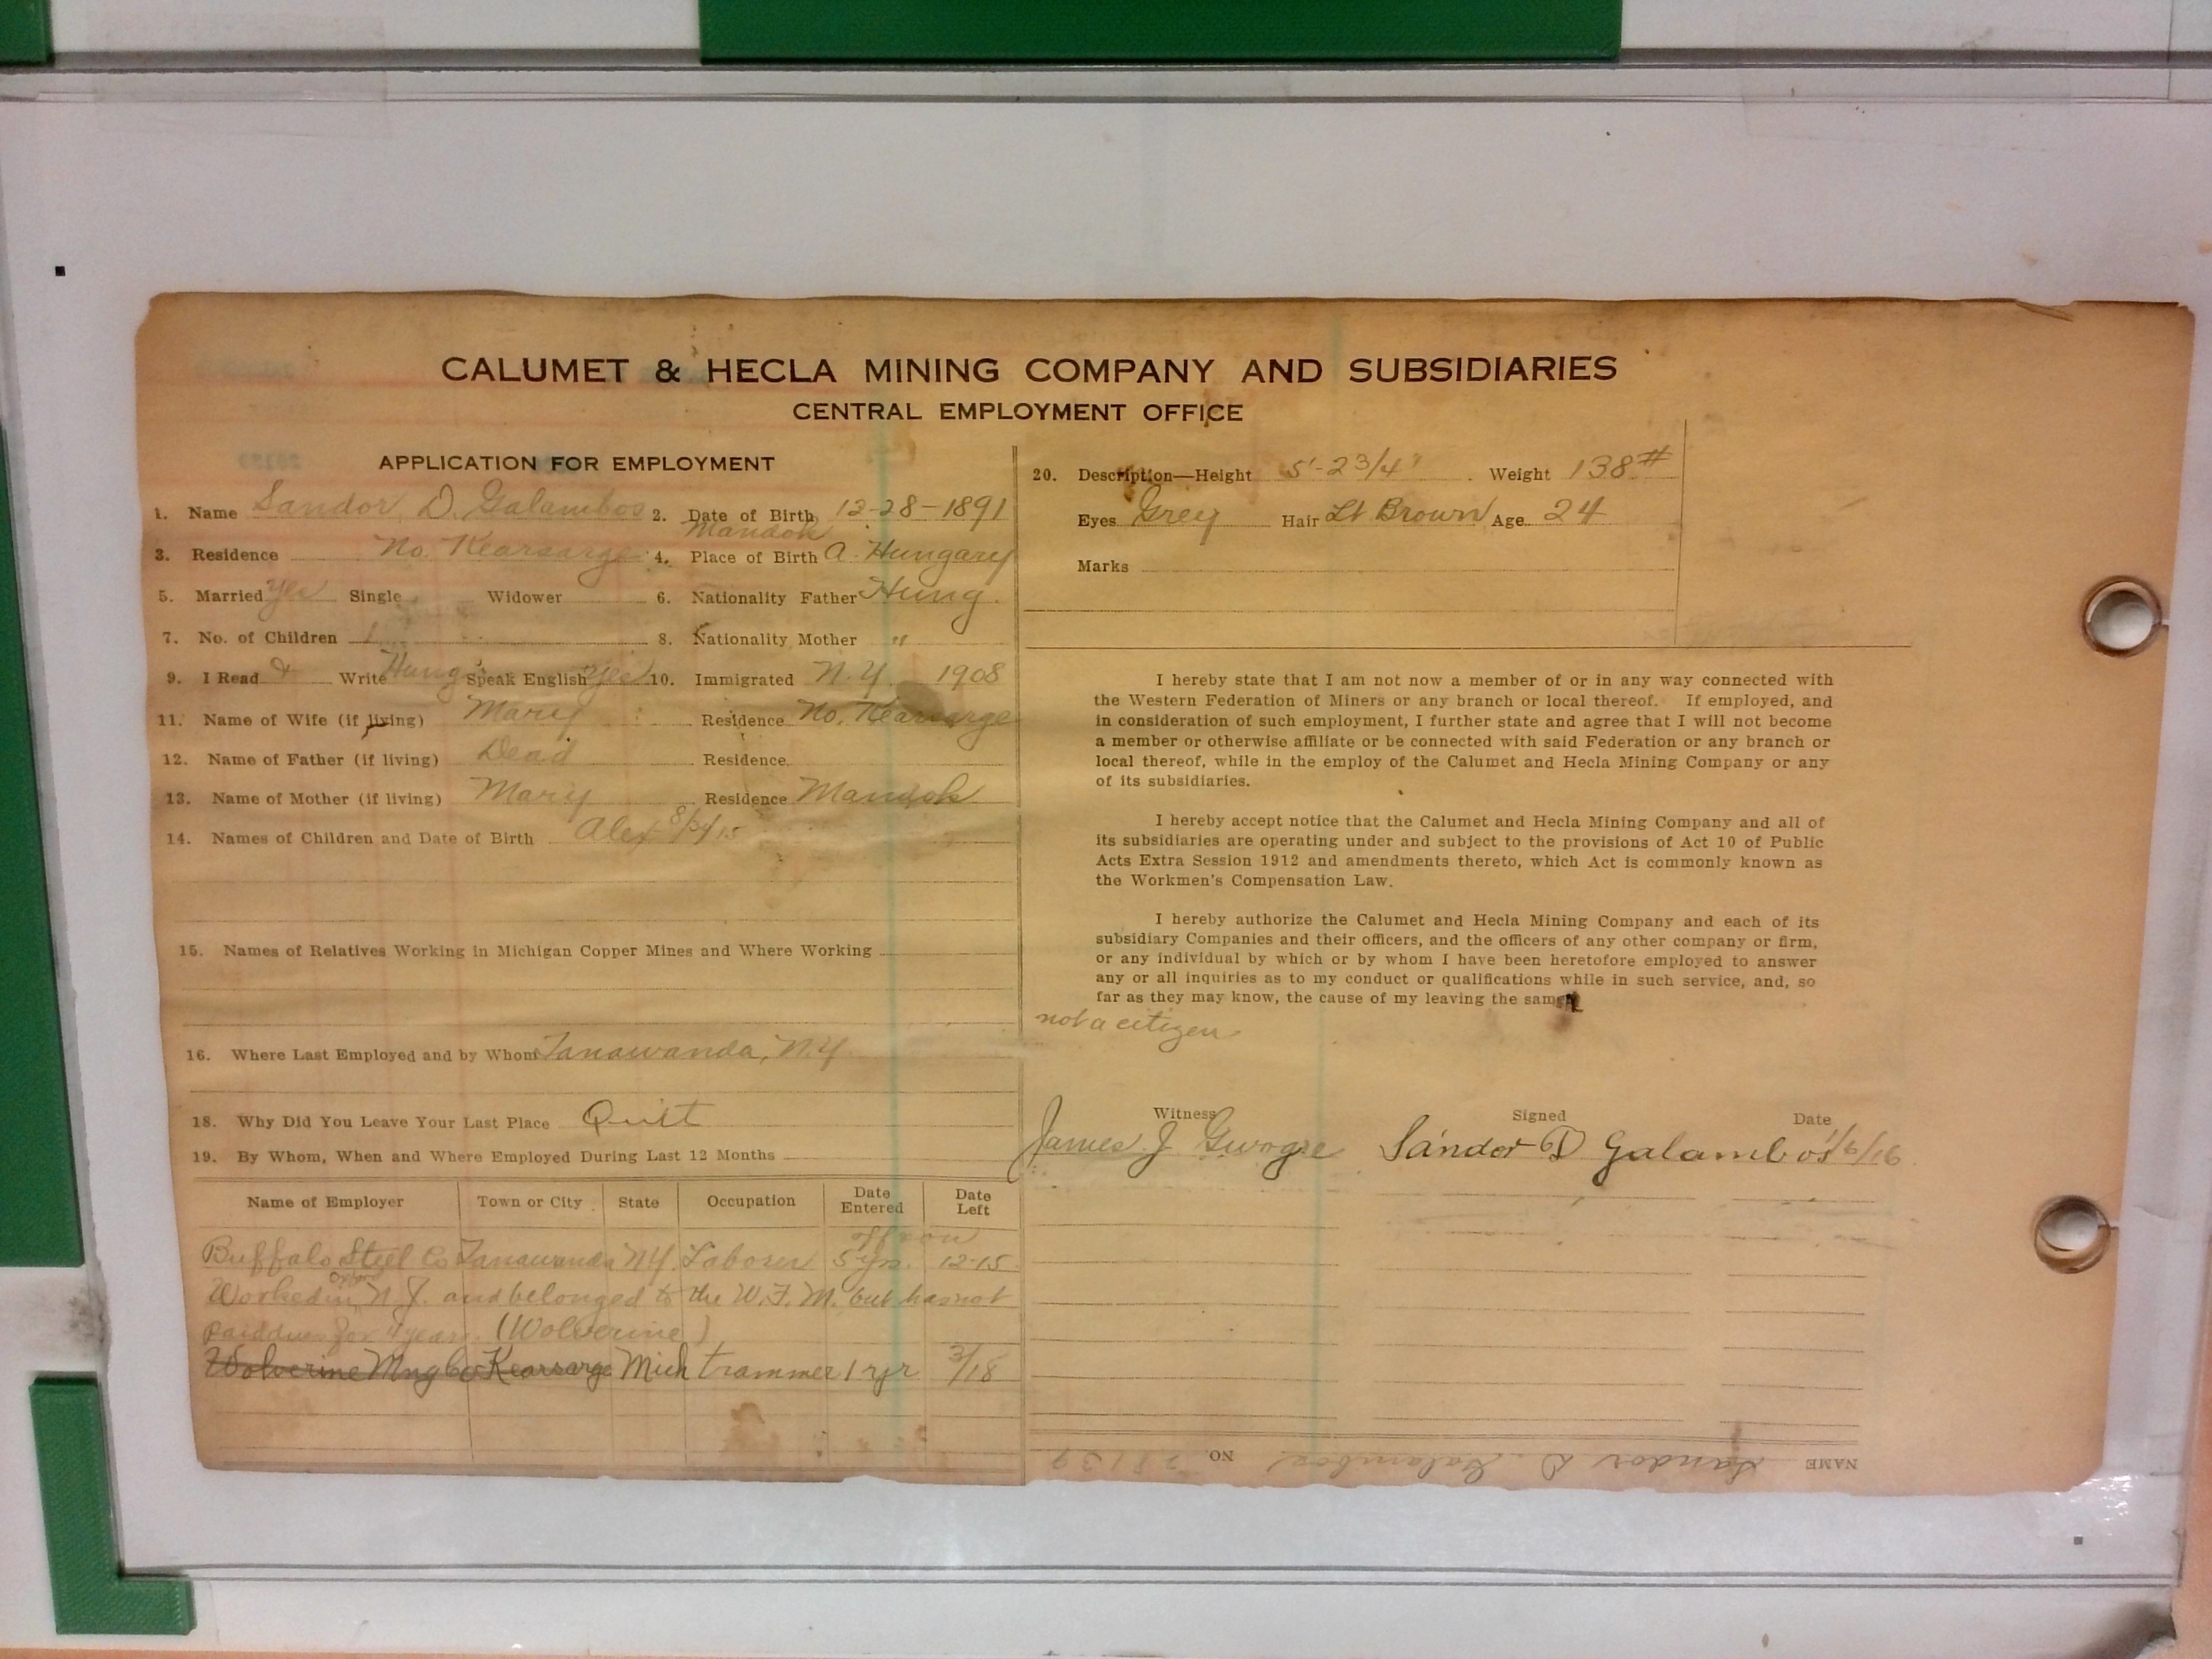 CALUMET & HECLA MINING COMPANY AND SUBSIDIARIES
CENTRAL EMPLOYMENT OFFICE
APPLICATION FOR EMPLOYMENT
1. Name Sandor D. Galambos 2. Date of Birth 12-28-1891
Mandok
3. Residence No. Kearsarge 4. Place of Birth A. Hungary
5. Married yes Single Widower 6. Nationality Father Hung.
7. No. of Children 1 8. Nationality Mother "
9. I Read & Write Hung. Speak English yes 10. Immigrated N.Y. 1908
11. Name of Wife (if living) Mary Residence No. Kearsarge
12. Name of Father (if living) Dead Residence
13. Name of Mother (if living) Mary Residence Mandok
14. Names of Children and Date of Birth Alex
15. Names of Relatives Working in Michigan Copper Mines and Where Working
16. Where Last Employed and by Whom Tanawanda, N.Y
18. Why Did You Leave Your Last Place Quit
19. By Whom, When and Where Employed During Last 12 Months
Name of Employer Town or City State Occupation Date Entered Date Left
off & on
Buffalo Steel Co Tanawanda N.Y. Laborer 5 yrs. 12-15
Worked in N.J. and belonged to the W.F.M. but has not
paid dues for 4 years. (Wolverine)
Wolverine Mng Co Kearsarge Mich trammer 1 yr 3/18
20. Description—Height 5'-2 3/4" Weight 138#
Eyes Grey Hair Lt Brown Age 24
Marks
I hereby state that I am not now a member of or in any way connected with
the Western Federation of Miners or any branch or local thereof. If employed, and
in consideration of such employment, I further state and agree that I will not become
a member or otherwise affiliate or be connected with said Federation or any branch or
local thereof, while in the employ of the Calumet and Hecla Mining Company or any
of its subsidiaries.
I hereby accept notice that the Calumet and Hecla Mining Company and all of
its subsidiaries are operating under and subject to the provisions of Act 10 of Public
Acts Extra Session 1912 and amendments thereto, which Act is commonly known as
the Workmen's Compensation Law.
I hereby authorize the Calumet and Hecla Mining Company and each of its
subsidiary Companies and their officers, and the officers of any other company or firm,
or any individual by which or by whom I have been heretofore employed to answer
any or all inquiries as to my conduct or qualifications while in such service, and, so
far as they may know, the cause of my leaving the same
not a citizen
Witness Signed Date
James J Sándor D Galambos 1/6/16
NAME Sandor D. Galambos NO.